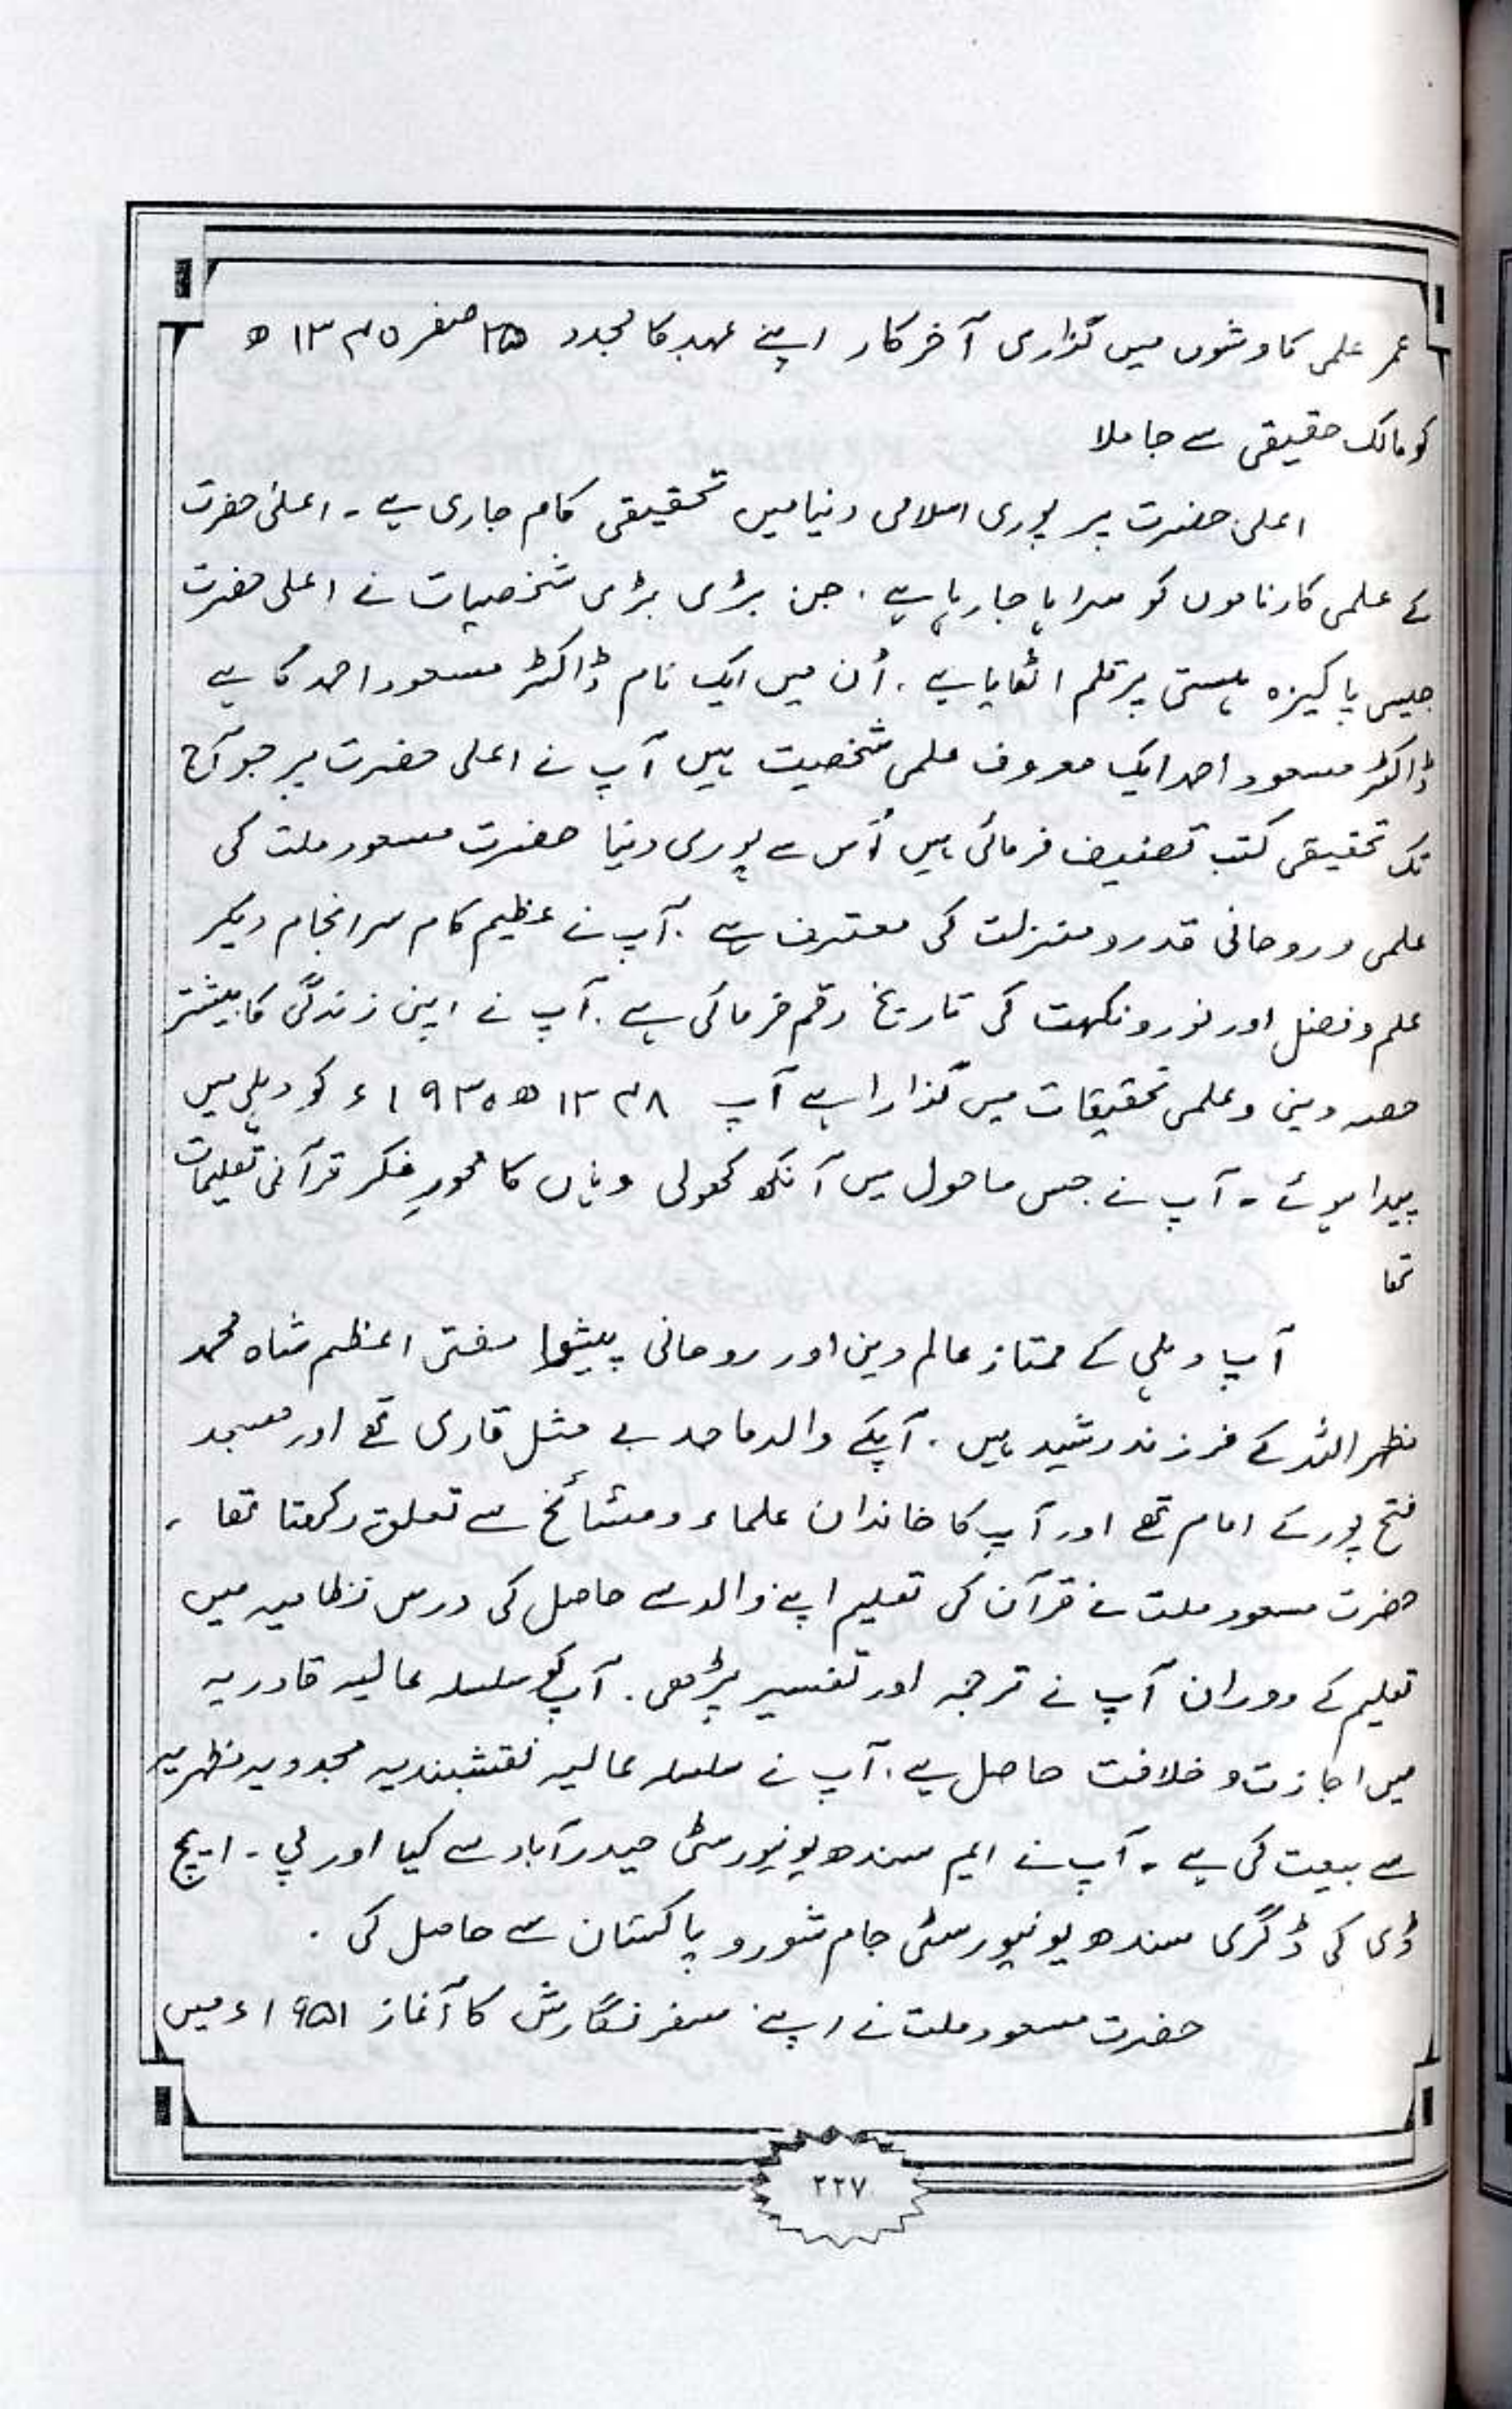 عمر علمی کاوشوں میں گذاری آخرکار اپنے عہد کا مجدد ۲۵ صفر ۱۳۴۰ھ
کو مالک حقیقی سے جا ملا
اعلیٰ حضرت پر پوری اسلامی دنیا میں تحقیقی کام جاری ہے۔ اعلیٰ حضرت
کے علمی کارناموں کو سراہا جا رہا ہے۔ جن بڑی بڑی شخصیات نے اعلیٰ حضرت
جیسی پاکیزہ ہستی پر قلم اٹھایا ہے۔ اُن میں ایک نام ڈاکٹر مسعود احمد کا ہے
ڈاکٹر مسعود احمد ایک معروف علمی شخصیت ہیں آپ نے اعلی حضرت پر جو آج
تک تحقیقی کتب تصنیف فرمائی ہیں اُس سے پوری دنیا حضرت مسعود ملت کی
علمی و روحانی قدر و منزلت کی معترف ہے۔ آپ نے عظیم کام سرانجام دیکر
علم و فضل اور نور و نکہت کی تاریخ رقم فرمائی ہے۔ آپ نے اپنی زندگی کا بیشتر
حصہ دینی و علمی تحقیقات میں گذارا ہے آپ ۱۳۴۸ھ ۱۹۳۰ء کو دہلی میں
پیدا ہوئے۔ آپ نے جس ماحول میں آنکھ کھولی وہاں کا محورِ فکر قرآنی تعلیمات
تھا
آپ دہلی کے ممتاز عالم دین اور روحانی پیشوا مفتی اعظم شاہ محمد
مظہر اللہ کے فرزند رشید ہیں۔ آپکے والد ماجد بے مثل قاری تھے اور مسجد
فتح پور کے امام تھے اور آپ کا خاندان علماء و مشائخ سے تعلق رکھتا تھا۔
حضرت مسعود ملت نے قرآن کی تعلیم اپنے والد سے حاصل کی درس نظامیہ میں
تعلیم کے دوران آپ نے ترجمہ اور تفسیر پڑھی۔ آپ کو سلسلہ عالیہ قادریہ
میں اجازت و خلافت حاصل ہے۔ آپ نے سلسلہ عالیہ نقشبندیہ مجددیہ مظہریہ
سے بیعت کی ہے۔ آپ نے ایم سندھ یونیورسٹی حیدرآباد سے کیا اور پی۔ ایچ
ڈی کی ڈگری سندھ یونیورسٹی جام شورو پاکستان سے حاصل کی۔
حضرت مسعود ملت نے اپنے سفر نگارش کا آغاز ۱۹۵۱ء میں
۲۲۷